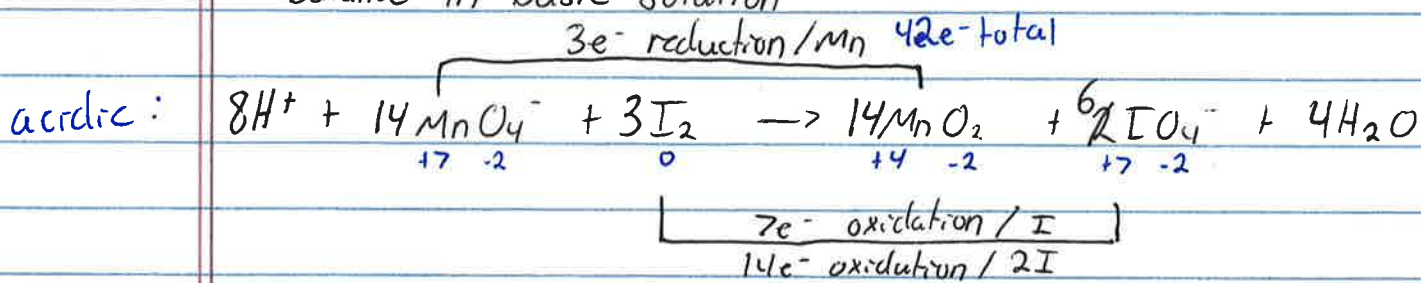 balance in basic solution
3e⁻ reduction/Mn 42e⁻ total
acidic: 8H⁺ + 14MnO₄⁻ + 3I₂ —> 14MnO₂ + 6IO₄⁻ + 4H₂O
+7 -2 0 +4 -2 +7 -2
7e⁻ oxidation / I
14e⁻ oxidation / 2I